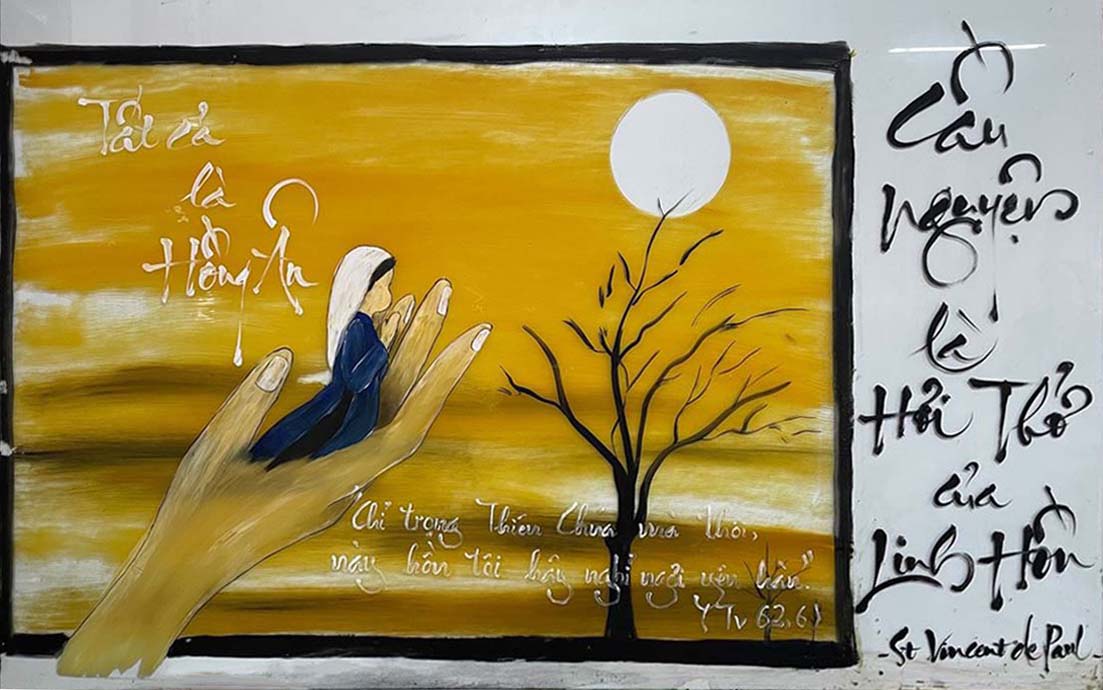 Tất cả
là
Hồng Ân
Chỉ trong Thiên Chúa mà thôi,
này hồn tôi hãy nghỉ ngơi yên hàn.
TV 62,6
Cầu
Nguyện
là
Hơi Thở
của
Linh Hồn
- St Vincent de Paul -